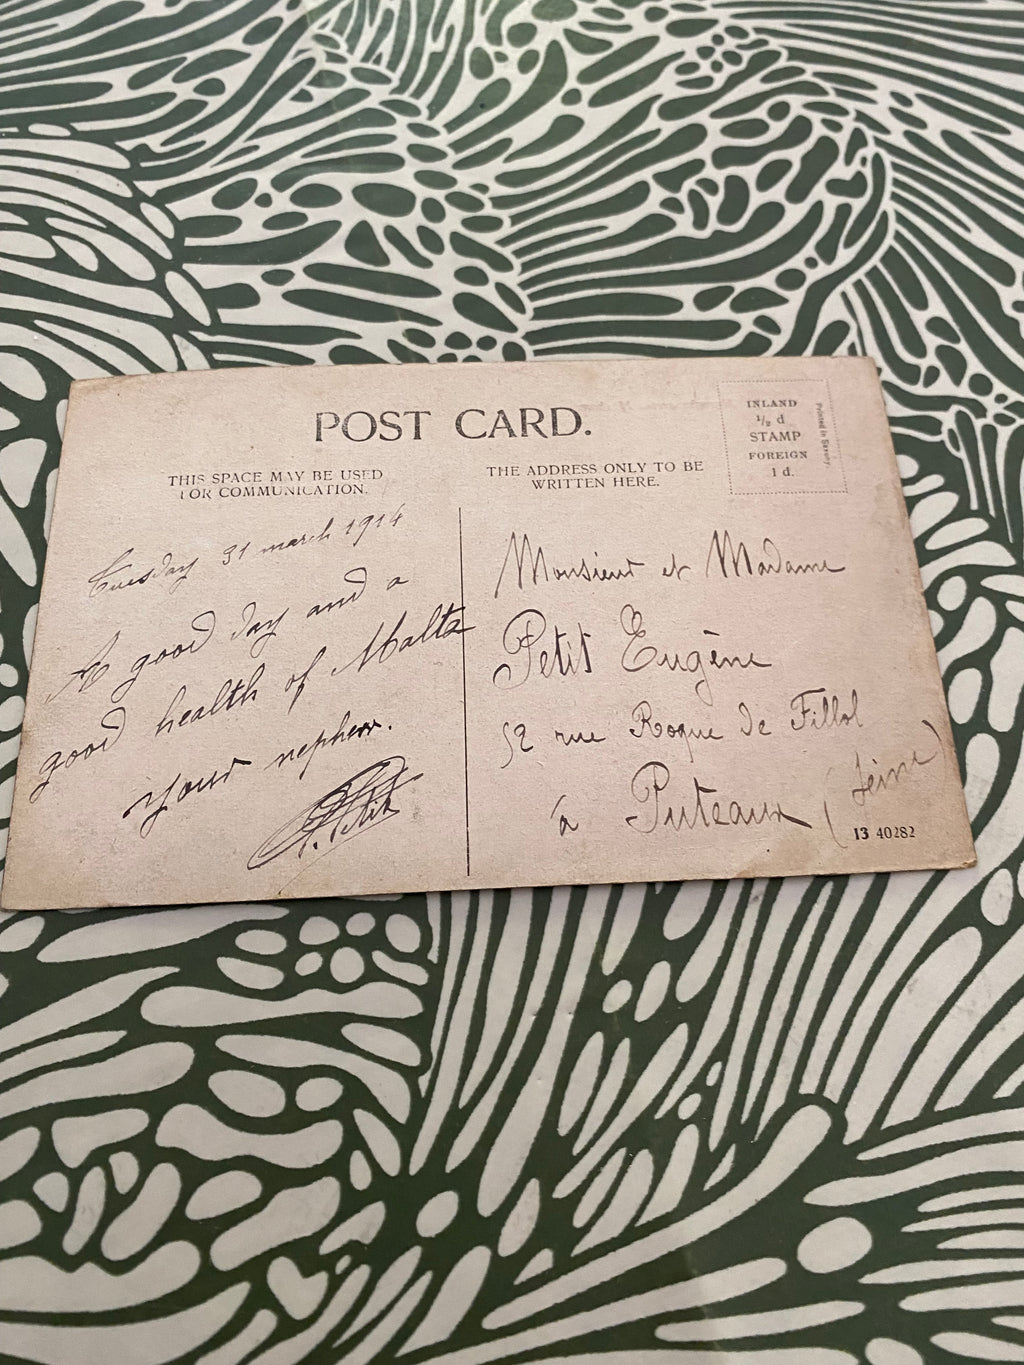 POST CARD.
THIS SPACE MAY BE USED
FOR COMMUNICATION.
Tuesday 31 march 1914
A good day and a
good health of Malta
your nephew.
P. Petit
THE ADDRESS ONLY TO BE
WRITTEN HERE.
INLAND
½ d
STAMP
FOREIGN
1 d.
Printed in Saxony
Monsieur et Madame
Petit Eugène
52 rue Roque de Fillol
à Puteaux (Seine)
13 40282